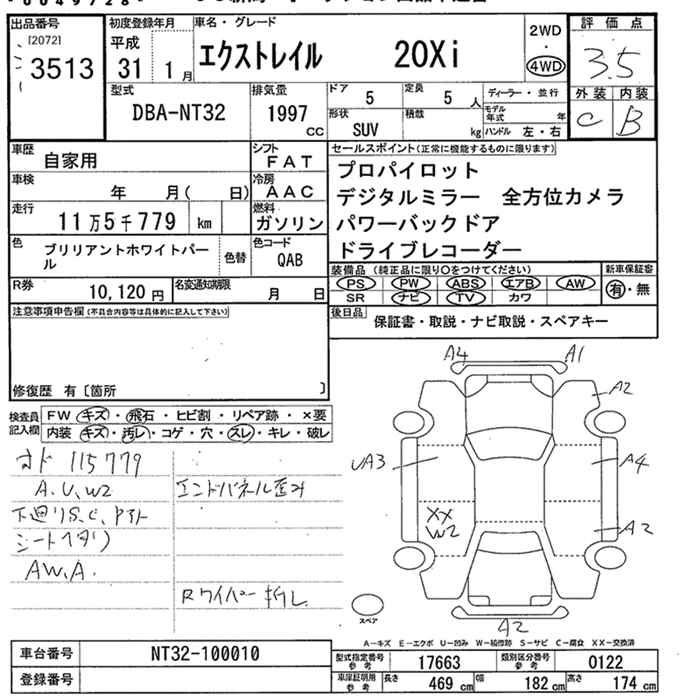 出品番号 初度登録年月 車名・グレード 2WD・4WD 評価点
[2072] 3513 平成 31 1月 エクストレイル 20Xi 3.5
型式 DBA-NT32 排気量 1997 cc ドア 5 定員 5人 ディーラー・並行 外装 C 内装 B
形状 SUV 積載 kg モデル年式 年 ハンドル 左・右
車歴 自家用 シフト FAT セールスポイント(正常に機能するものに限ります)
車検 年 月( 日) 冷房 AAC プロパイロット
デジタルミラー 全方位カメラ
走行 11万5千779 km 燃料 ガソリン パワーバックドア
ドライブレコーダー
色 ブリリアントホワイトパール 色替 色コード QAB
装備品 (純正品に限り○をつけてください) 新車保証書
PS PW ABS エアB AW 有・無
SR ナビ TV カワ
R券 10,120円 名変通知期限 月 日
後日品 保証書・取説・ナビ取説・スペアキー
注意事項申告欄 (不具合内容等は具体的に記入して下さい)
修復歴 有〔箇所 〕
検査員記入欄 FW キズ・飛石・ヒビ割・リペア跡・×要
内装 キズ・汚レ・コゲ・穴・スレ・キレ・破レ
オド 115779
A.U.W2 エンドパネル歪み
下廻りS.C.
シートヘタリ
AW.A.
Rワイパー折レ
A4 A1
A2
UA3 A4
XX
W2 A2
スペア
A2
A-キズ E-エクボ U-凹み W-補修跡 S-サビ C-腐食 XX-交換済
車台番号 NT32-100010 型式指定番号 参考 17663 類別区分番号 参考 0122
登録番号 車庫証明用 参考 長さ 469 cm 幅 182 cm 高さ 174 cm